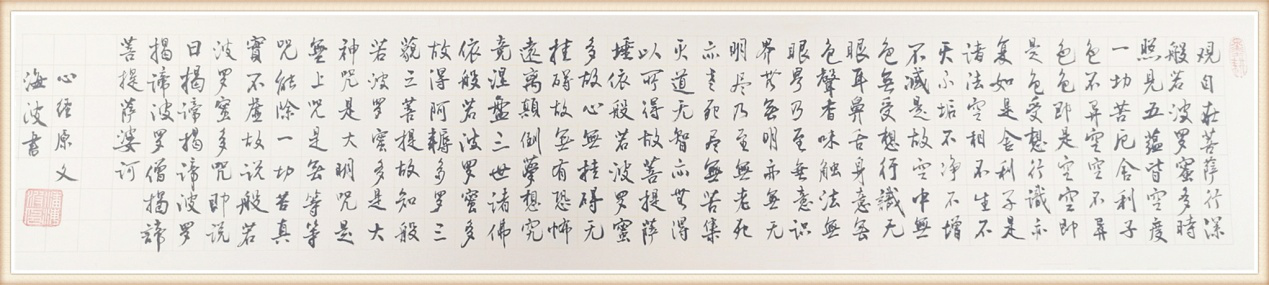 观自在菩萨行深
般若波罗蜜多时
照见五蕴皆空度
一切苦厄舍利子
色不异空空不异
色色即是空空即
是色受想行識亦
复如是舍利子是
诸法空相不生不
灭不垢不净不增
不减是故空中無
色無受想行識无
眼耳鼻舌身意無
色聲香味触法無
眼界乃至無意识
界无無明亦無无
明尽乃至無老死
亦老死尽無苦集
灭道无智亦无得
以所得故菩提萨
埵依般若波罗蜜
多故心無挂碍无
挂碍故無有恐怖
遠離颠倒夢想究
竟涅盤三世诸佛
依般若波罗蜜多
故得阿耨多罗三
藐三菩提故知般
若波罗蜜多是大
神咒是大明咒是
無上咒是無等等
咒能除一切苦真
實不虚故说般若
波罗蜜多咒即说
曰揭谛揭谛波罗
揭谛波罗僧揭谛
菩提萨婆诃
心经原文
海波書